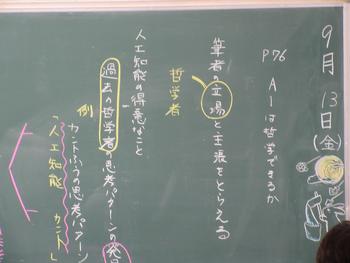 9月13日(金)
P76 AIは哲学できるか
筆者の立場と主張をとらえる
哲学者
人工知能の得意なこと
過去の哲学者の思考パターンの発
例
カントふうの思考パターン
「人工知能 カント」